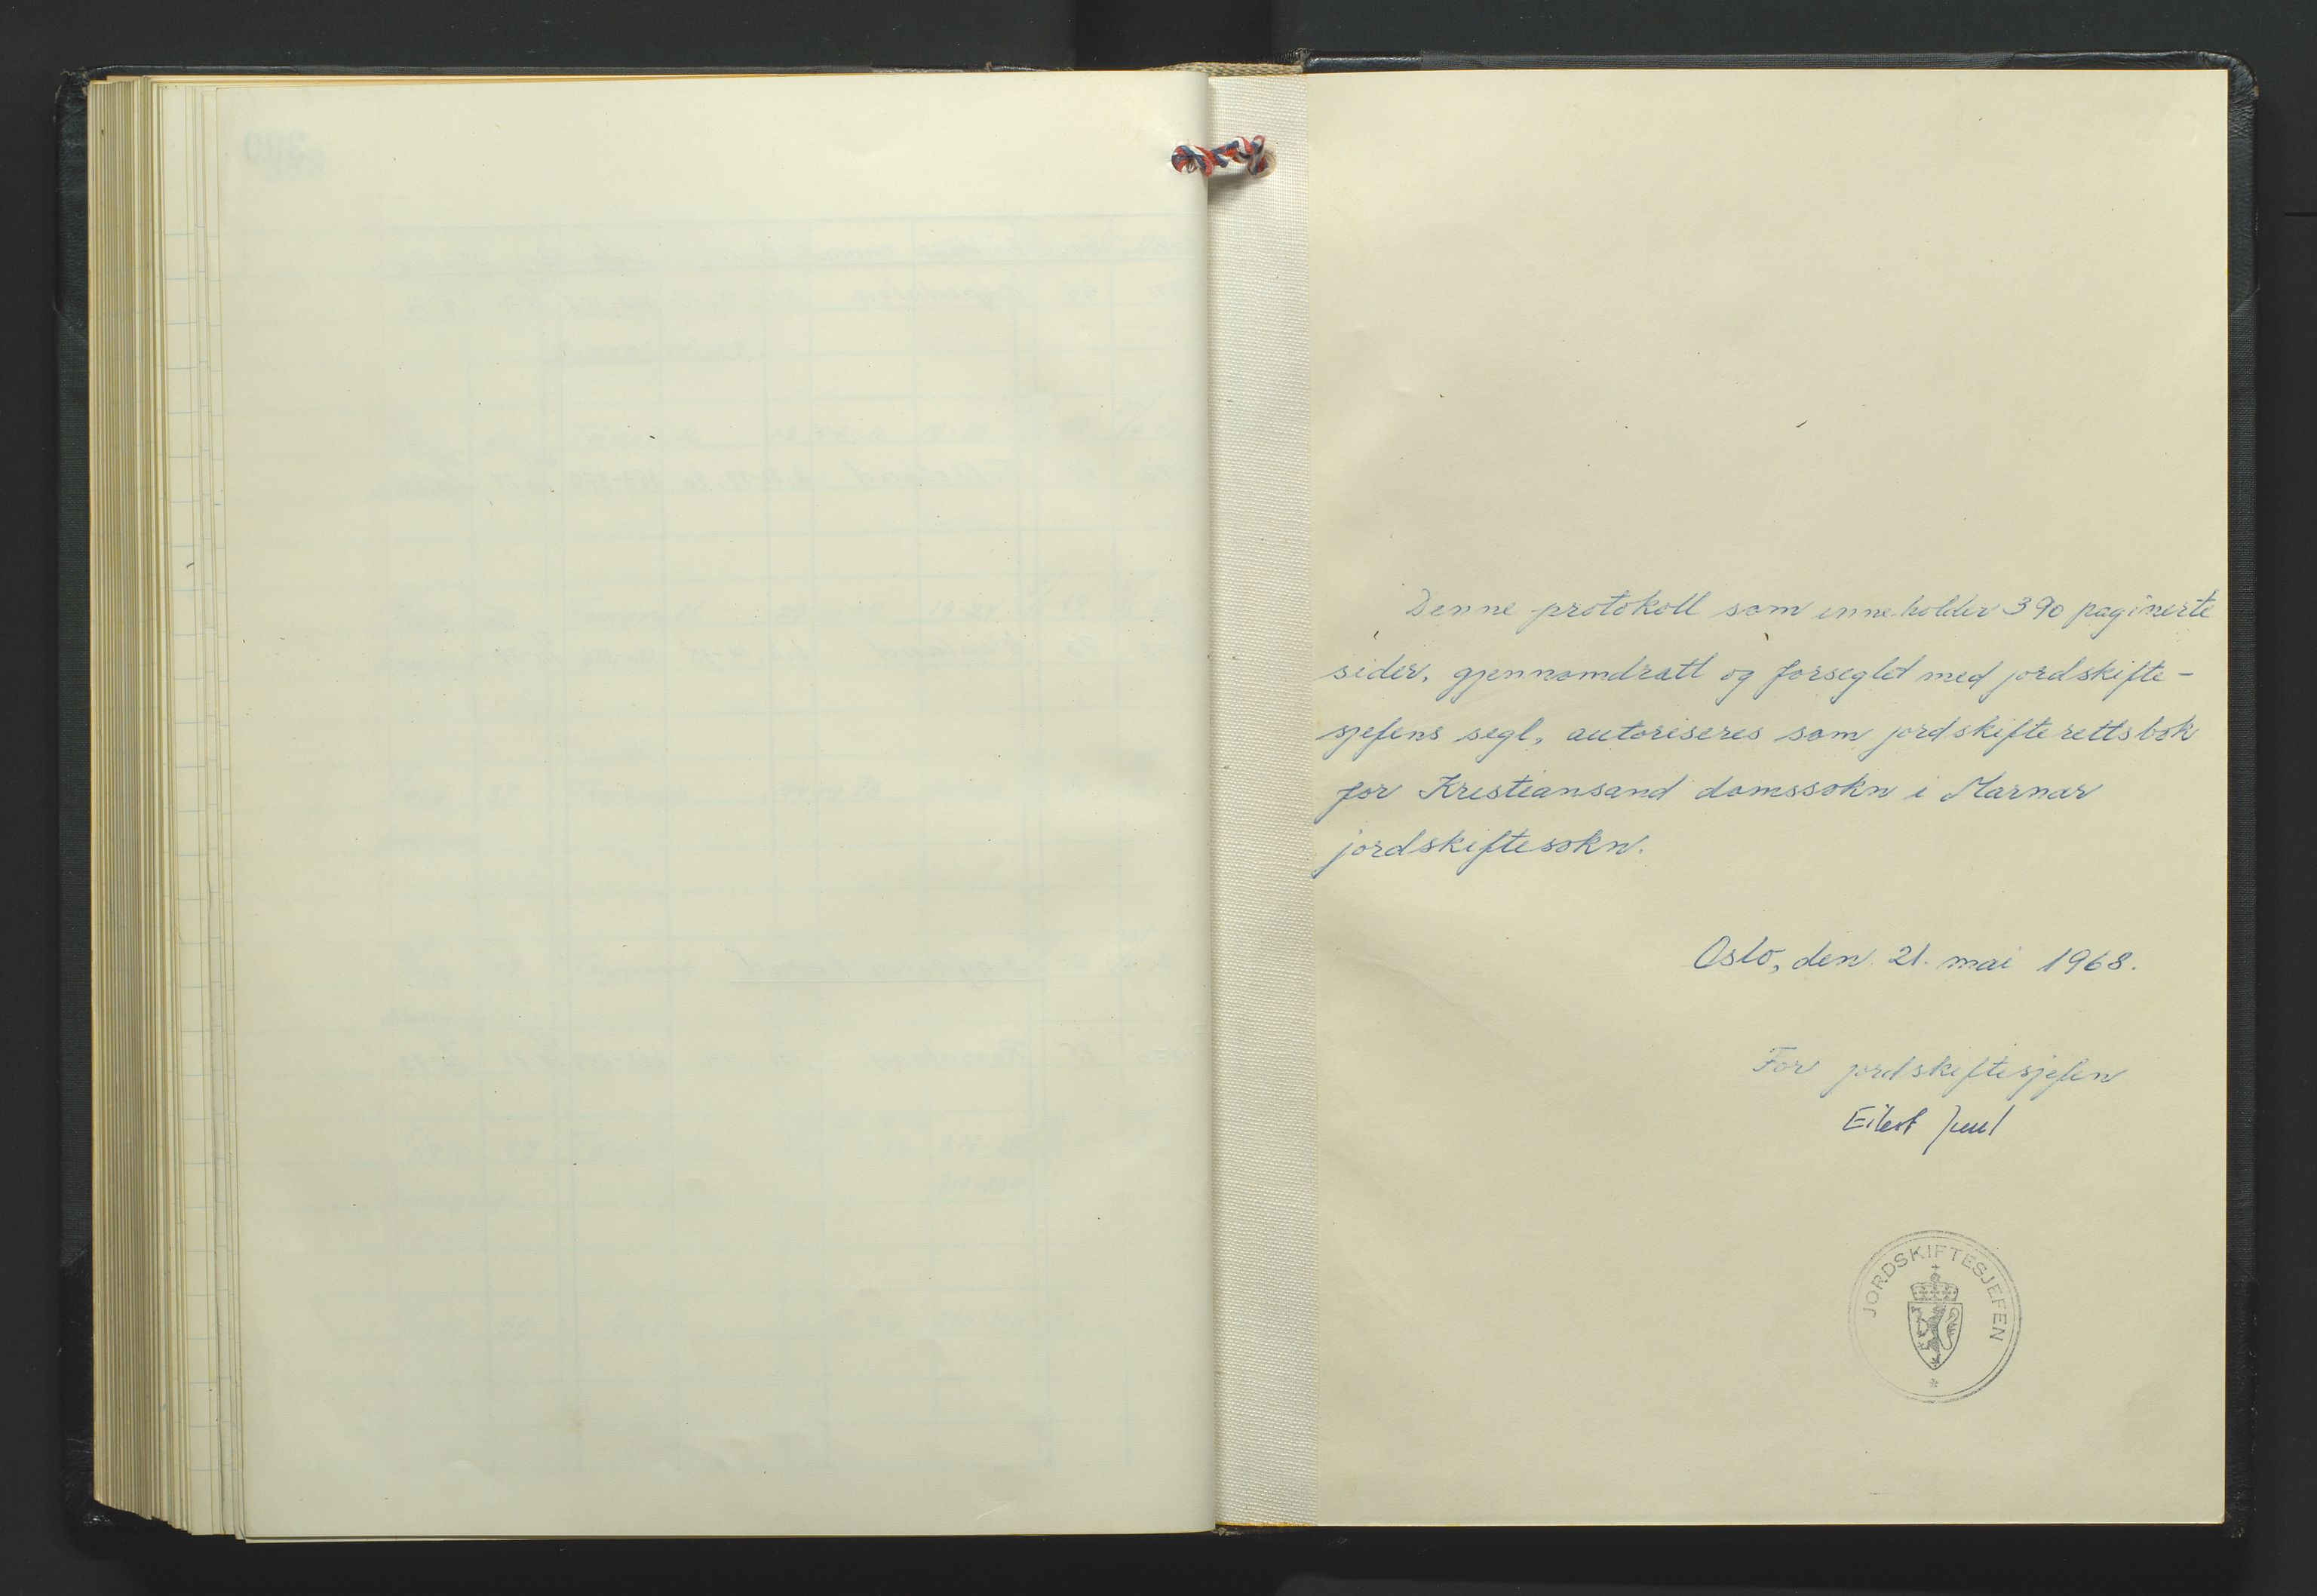 Denne protokoll som inneholder 390 paginerte
sider, gjennomdratt og forseglet med jordskifte-
sjefens segl, autoriseres som jordskifterettsbok
for Kristiansand domssokn i Marnar
jordskiftesokn.
Oslo, den 21. mai 1968.
For jordskiftesjefen
Eilert Juul
JORDSKIFTESJEFEN